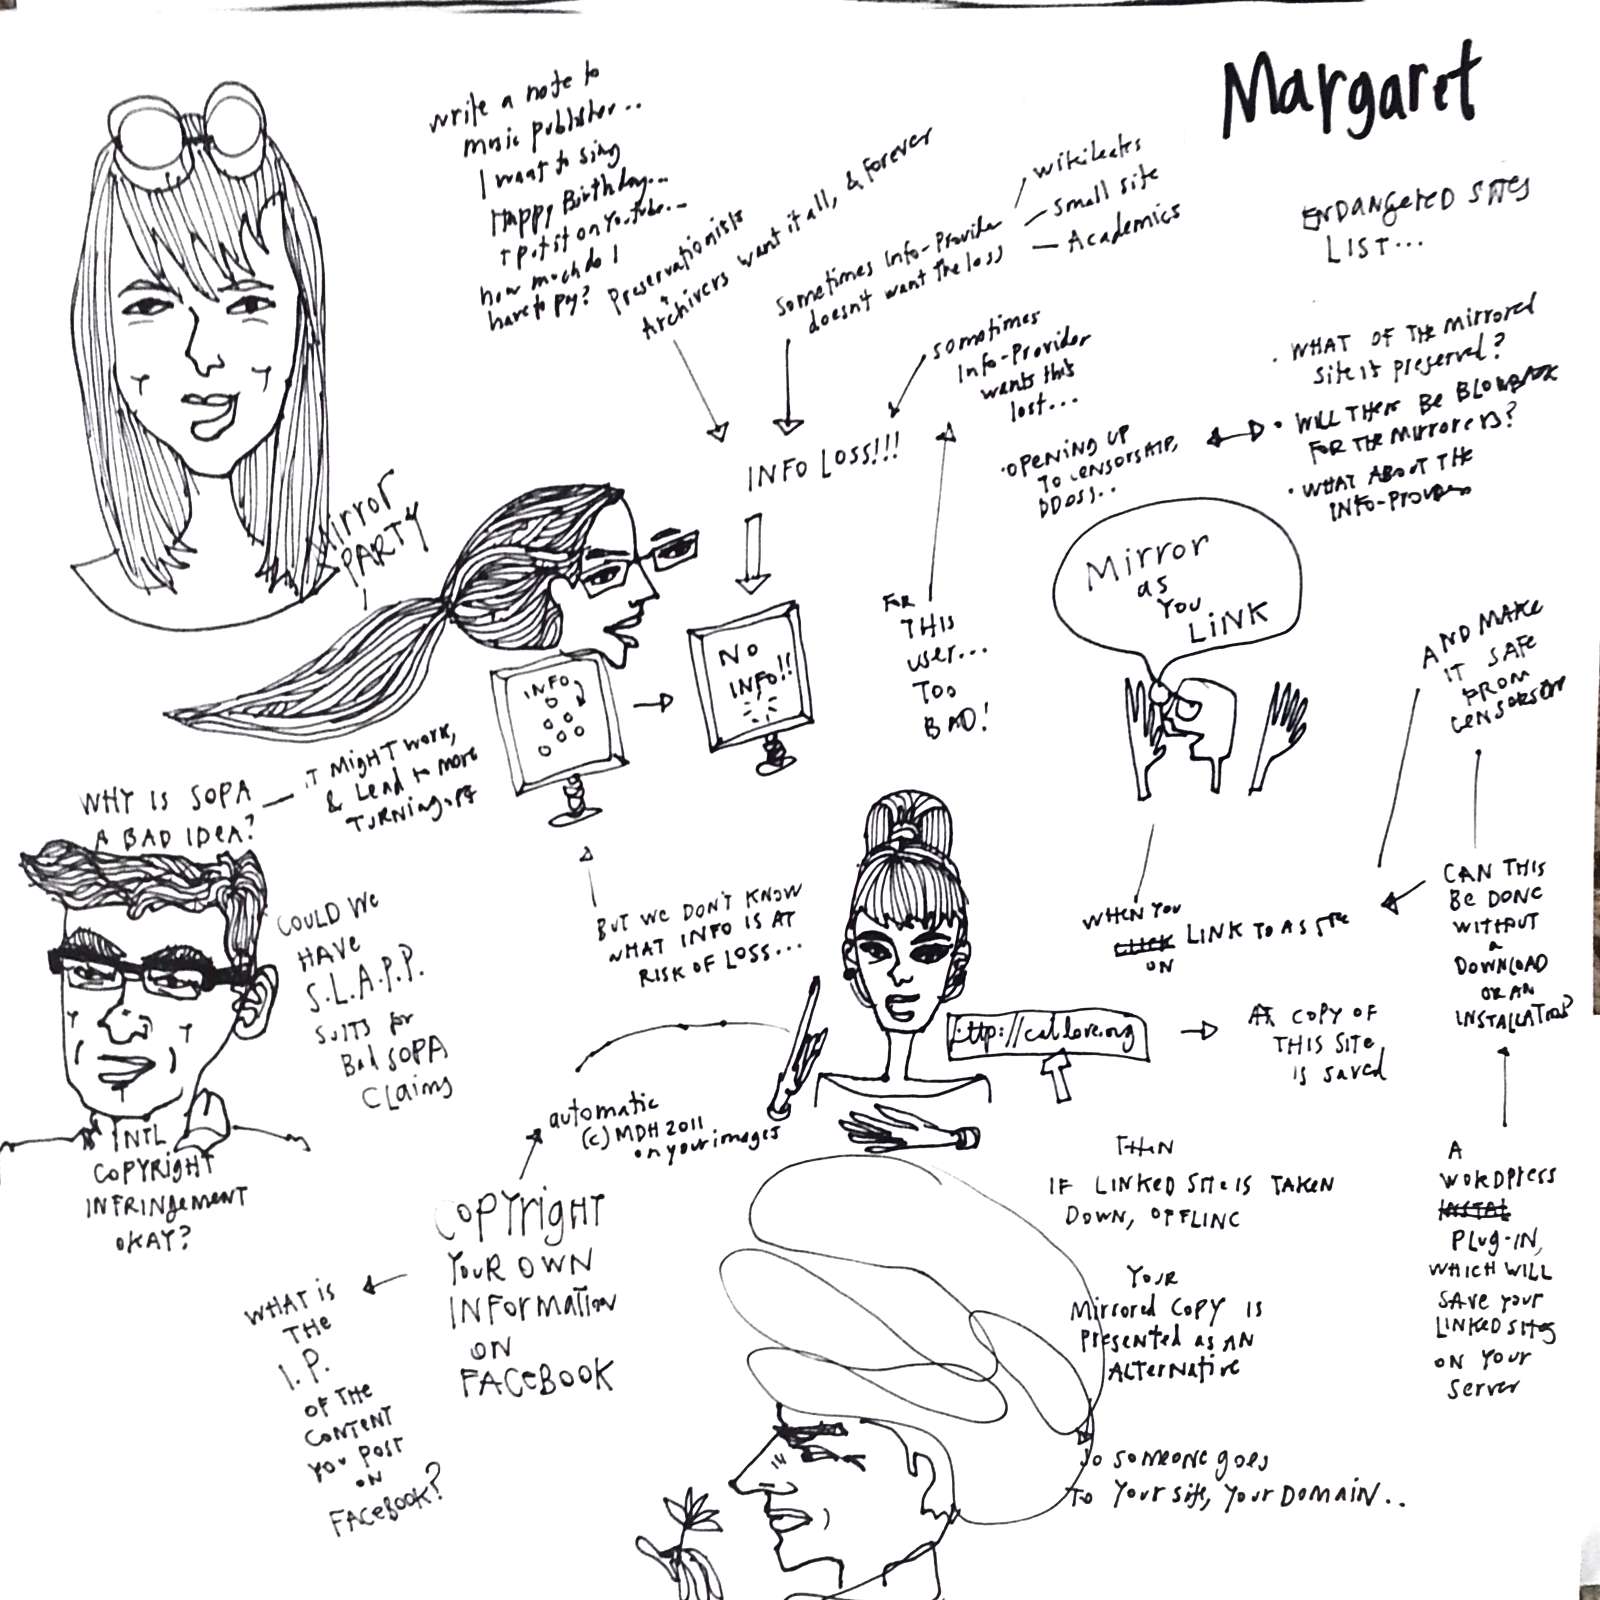 Margaret
write a note to
music publisher...
I want to sing
Happy Birthday...
+ put it on YouTube...
how much do I
have to pay?
Preservationists
+
Archivers want it all, & Forever
sometimes Info-Provider
doesn't want the loss
wikileaks
small site
Academics
ENDANGERED SITES
LIST...
sometimes
Info-Provider
wants this
lost...
INFO LOSS!!!
OPENING UP
TO CENSORSHIP,
DDOSS..
• WHAT OF THE Mirrored
Site is preserved?
• WILL THERE BE BLOWBACK
FOR THE MIRRORERS?
• WHAT ABOUT THE
INFO-Providers
Mirror
PARTY
Mirror
as
You
LiNK
INFO
NO
INFO!!
FOR
THIS
user...
TOO
BAD!
AND MAKE
IT SAFE
FROM
CENSORSHIP
WHY IS SOPA
A BAD IDEA?
IT MIGHT WORK,
& Lead to more
TURNING OFF
COULD We
HAVE
S.L.A.P.P.
SUITS for
Bad SOPA
CLaims
BUT WE DON'T KNOW
WHAT INFO IS AT
RISK OF LOSS...
WHEN YOU
CLICK LINK TO A SITE
ON
CAN THIS
BE DONE
WITHOUT
a
DOWNLOAD
OR AN
INSTALLATION?
http://catlove.org
A COPY OF
THIS SITE
IS SAVED
automatic
(c) MDH 2011
on your images
INTL
COPYRIGHT
INFRINGEMENT
OKAY?
COPYrigHT
YOUR OWN
INFORMATION
ON
FACEBOOK
WHAT iS
THE
I.P.
OF THE
CONTENT
YOU POST
ON
FACEBOOK?
THEN
IF LINKED SITE IS TAKEN
DOWN, OFFLINE
YOUR
Mirrored COPY IS
Presented AS AN
ALTERNATIVE
SO SOMEONE GOES
TO YOUR SITE, YOUR DOMAIN...
A
WORDPRESS
INSTAL
PLUG-IN,
WHICH WILL
SAVE YOUR
LINKED SITES
ON YOUR
SERVER